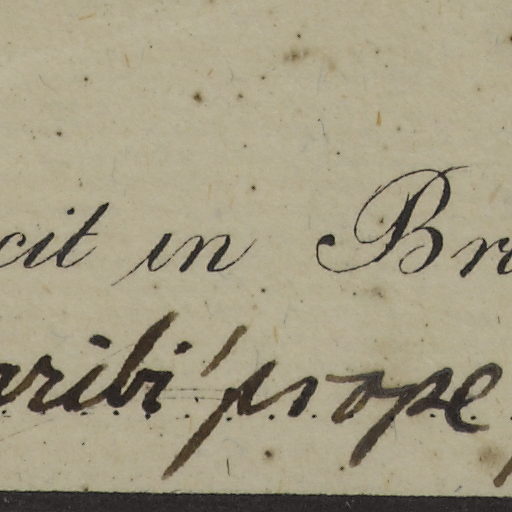 cit in Br
aribi prope